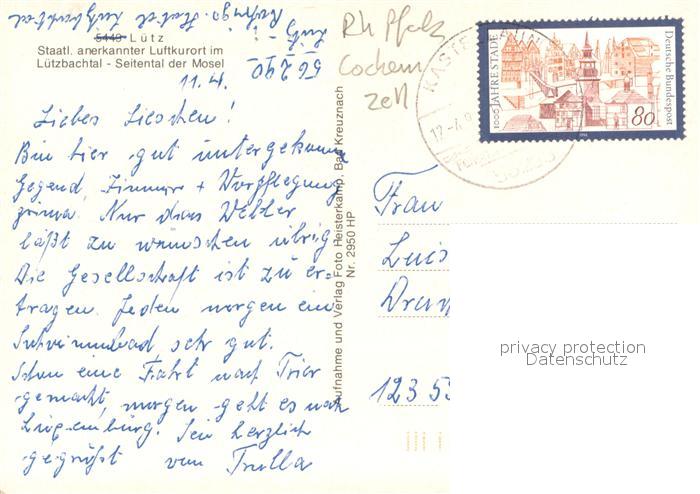 5449 Lütz
Staatl. anerkannter Luftkurort im
Lützbachtal - Seitental der Mosel
56290
Lütz -
Hotel Lützbachtal
11.4.
Rh Pfalz
Cochem
Zell
Liebes Lieschen!
Bin hier gut untergekommen
Gegend, Zimmer + Verpflegung
prima. Nur das Wetter
läßt zu wünschen übrig
Die Gesellschaft ist zu er-
tragen. Jeden morgen ein
Schwimmbad sehr gut.
Schon eine Fahrt nach Trier
gemacht, morgen geht es nach
Luxemburg. Sei herzlich
gegrüßt von Trulla
Aufnahme und Verlag Foto Heisterkamp, Bad Kreuznach
Nr. 2950 HP
KASTELLAUN
1000 JAHRE STADE
Deutsche Bundespost
80
Frau
Luis
Dra
123 55
privacy protection
Datenschutz